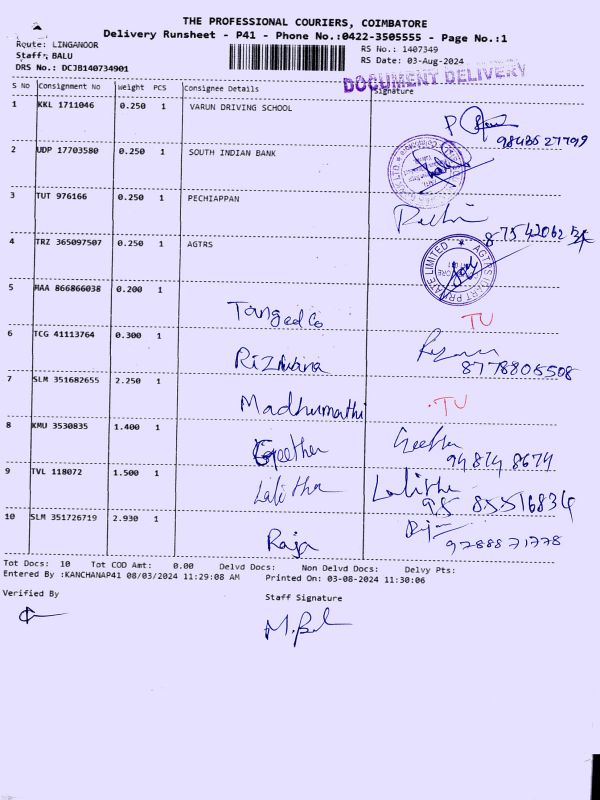 THE PROFESSIONAL COURIERS, COIMBATORE
Delivery Runsheet - P41 - Phone No.:0422-3505555 - Page No.:1
Route: LINGANOOR
Staff: BALU
DRS No.: DCJB140734901
RS No.: 1407349
RS Date: 03-Aug-2024
DOCUMENT DELIVERY
S No Consignment No Weight PCS Consignee Details Signature
1 KKL 1711046 0.250 1 VARUN DRIVING SCHOOL
2 UDP 17703580 0.250 1 SOUTH INDIAN BANK
3 TUT 976166 0.250 1 PECHIAPPAN
4 TRZ 365097507 0.250 1 AGTRS
5 MAA 866866038 0.200 1 Tangedco TU
6 TCG 41113764 0.300 1 Rizwana 8778805508
7 SLM 351682655 2.250 1 Madhumathi TU
8 KMU 3530835 1.400 1 Geetha Geetha
9 TVL 118072 1.500 1 Lalitha Lalitha
10 SLM 351726719 2.930 1 Raja
Tot Docs: 10 Tot COD Amt: 0.00 Delvd Docs: Non Delvd Docs: Delvy Pts:
Entered By :KANCHANAP41 08/03/2024 11:29:08 AM Printed On: 03-08-2024 11:30:06
Verified By
Staff Signature